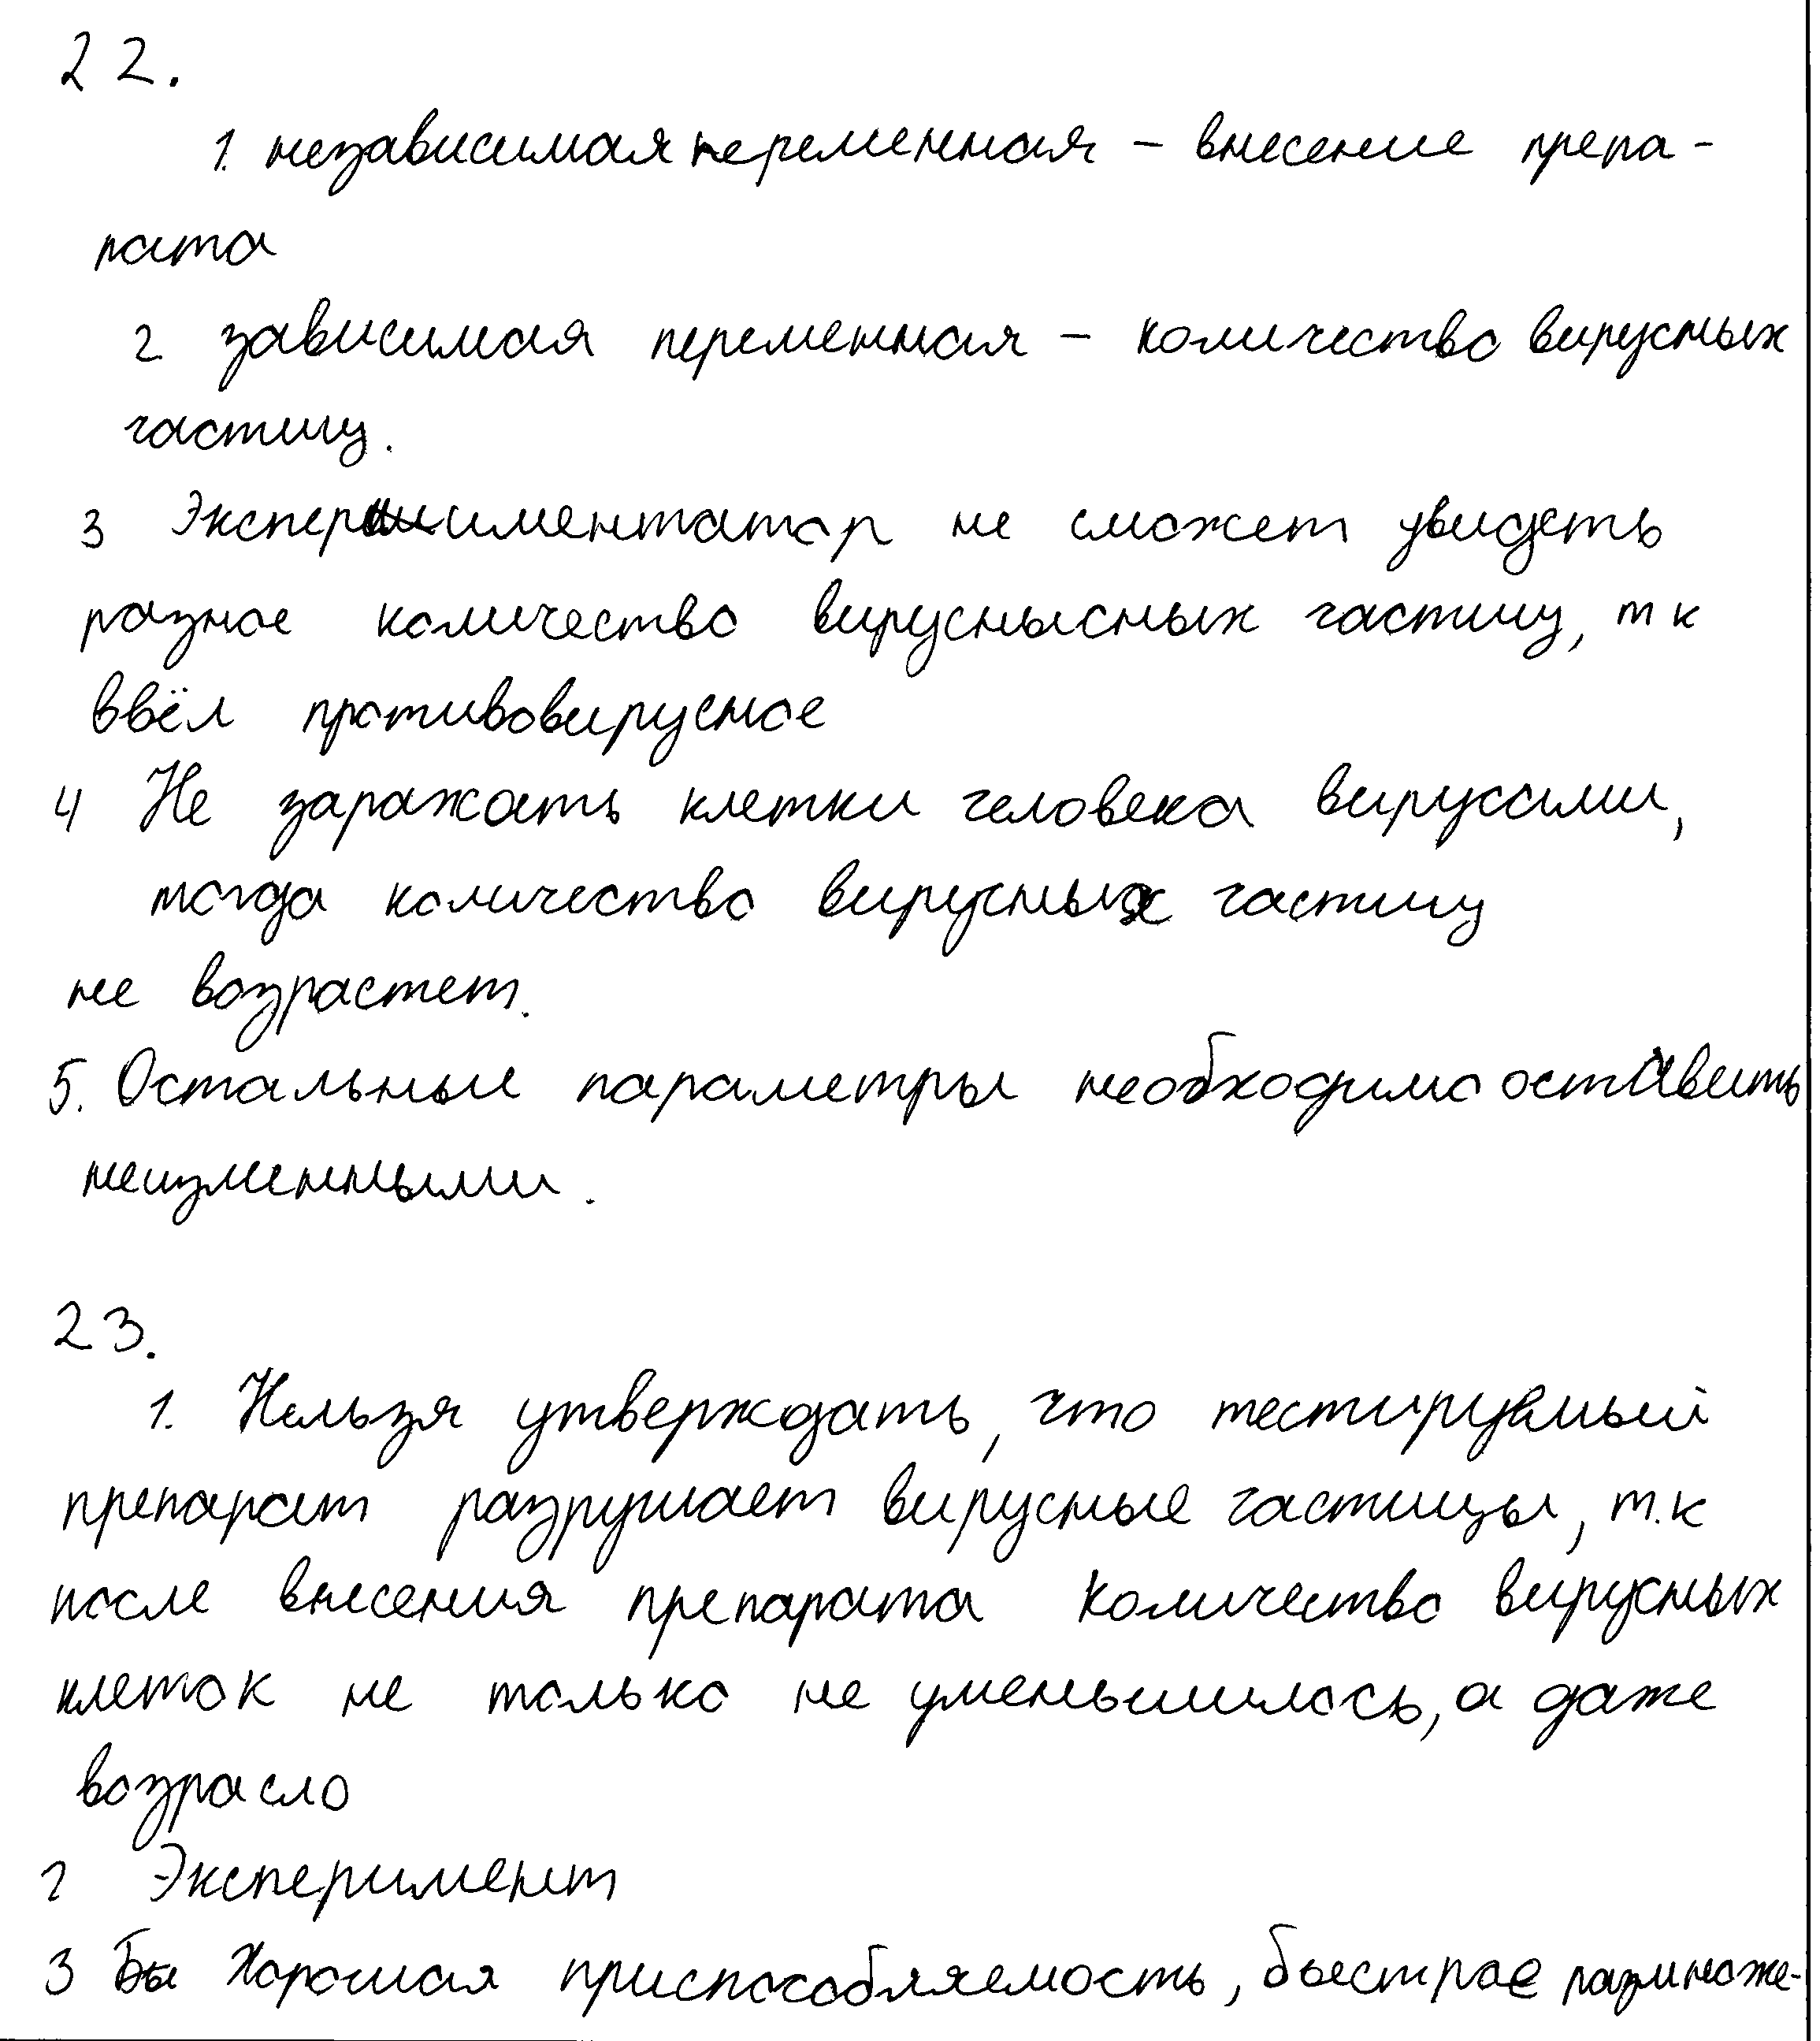 22.
1. независимая переменная – внесение препа-
рата
2 зависимая переменная – количество вирусных
частиц.
3 Экспериментатор не сможет увидеть
разное количество вируснысных частиц, т к
ввёл противовирусное
4 Не заражать клетки человека вирусами,
тогда количество вирусных частиц
не возрастет.
5. Остальные параметры необходимо оставить
неизменными.
23.
1. Нельзя утверждать, что тестируемый
препарат разрушает вирусные частицы, т.к
после внесения препарата количество вирусных
клеток не только не уменьшилось, а даже
возрасло
2 Эксперимент
3 Хорошая приспособляемость, быстрое размноже-